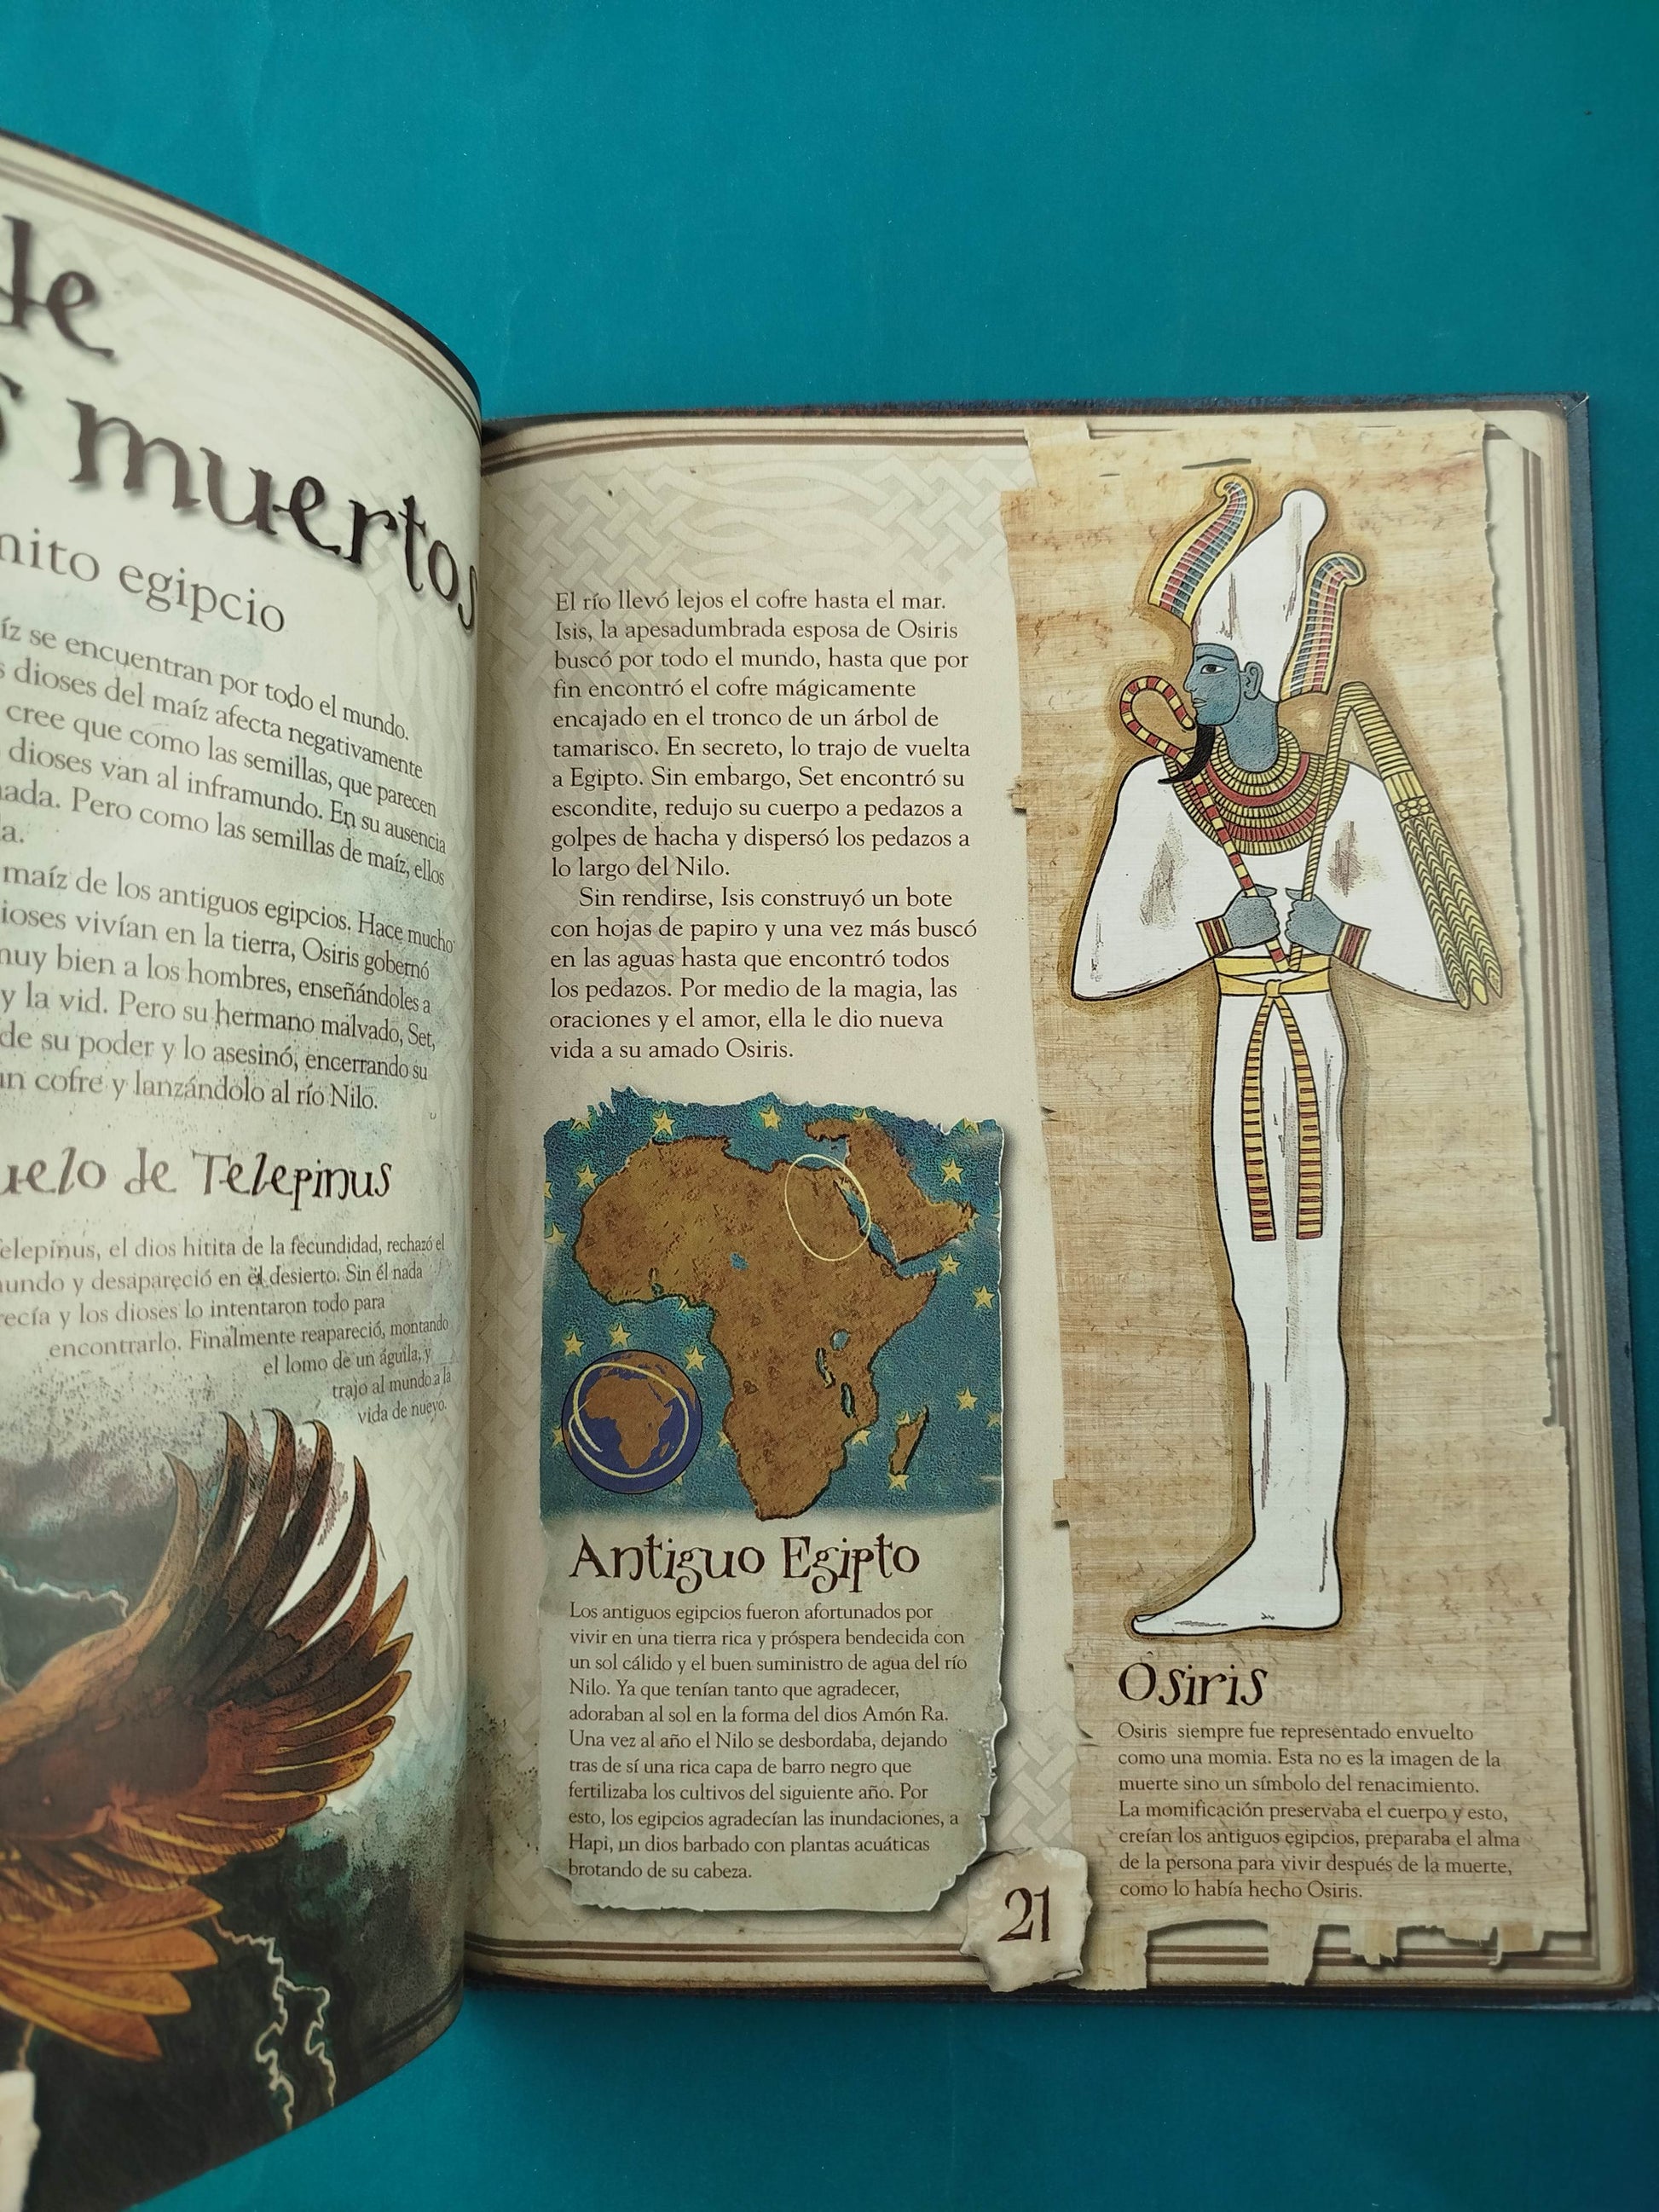 de
muertos
mito egipcio
se encuentran por todo el mundo.
dioses del maíz afecta negativamente
cree que como las semillas, que parecen
dioses van al inframundo. En su ausencia
nada. Pero como las semillas de maíz, ellos
maíz de los antiguos egipcios. Hace mucho
dioses vivían en la tierra, Osiris gobernó
muy bien a los hombres, enseñándoles a
y la vid. Pero su hermano malvado, Set,
de su poder y lo asesinó, encerrando su
un cofre y lanzándolo al río Nilo.
de Telepinus
Telepinus, el dios hitita de la fecundidad, rechazó el
mundo y desapareció en el desierto. Sin él nada
crecía y los dioses lo intentaron todo para
encontrarlo. Finalmente reapareció, montando
el lomo de un águila, y
trajo al mundo a la
vida de nuevo.
El río llevó lejos el cofre hasta el mar.
Isis, la apesadumbrada esposa de Osiris
buscó por todo el mundo, hasta que por
fin encontró el cofre mágicamente
encajado en el tronco de un árbol de
tamarisco. En secreto, lo trajo de vuelta
a Egipto. Sin embargo, Set encontró su
escondite, redujo su cuerpo a pedazos a
golpes de hacha y dispersó los pedazos a
lo largo del Nilo.
Sin rendirse, Isis construyó un bote
con hojas de papiro y una vez más buscó
en las aguas hasta que encontró todos
los pedazos. Por medio de la magia, las
oraciones y el amor, ella le dio nueva
vida a su amado Osiris.
Antiguo Egipto
Los antiguos egipcios fueron afortunados por
vivir en una tierra rica y próspera bendecida con
un sol cálido y el buen suministro de agua del río
Nilo. Ya que tenían tanto que agradecer,
adoraban al sol en la forma del dios Amón Ra.
Una vez al año el Nilo se desbordaba, dejando
tras de sí una rica capa de barro negro que
fertilizaba los cultivos del siguiente año. Por
esto, los egipcios agradecían las inundaciones, a
Hapi, un dios barbado con plantas acuáticas
brotando de su cabeza.
21
Osiris
Osiris siempre fue representado envuelto
como una momia. Esta no es la imagen de la
muerte sino un símbolo del renacimiento.
La momificación preservaba el cuerpo y esto,
creían los antiguos egipcios, preparaba el alma
de la persona para vivir después de la muerte,
como lo había hecho Osiris.